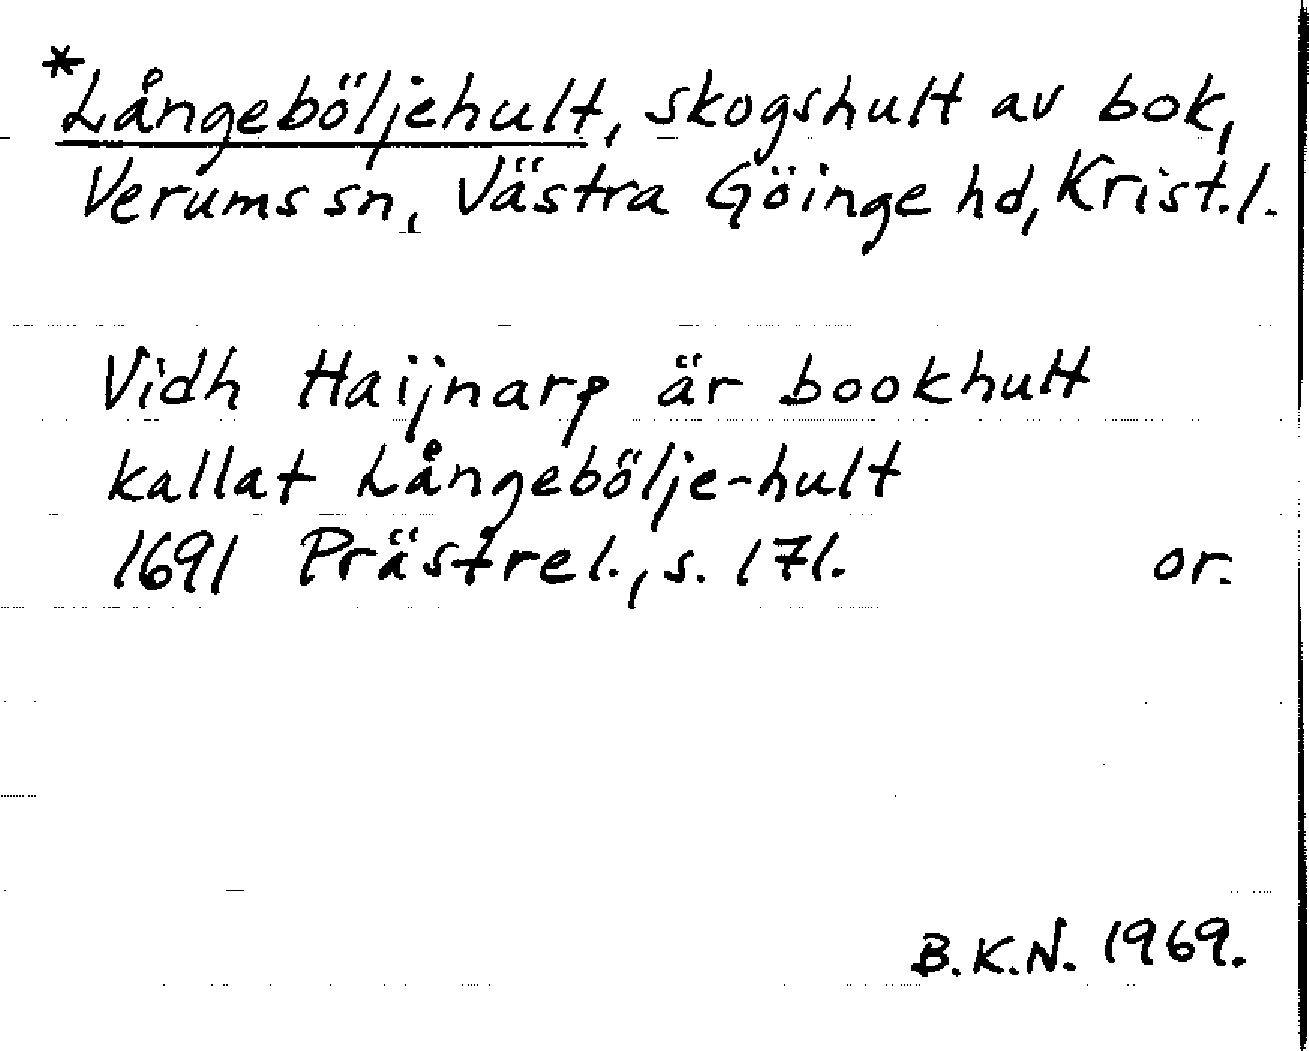 *Långeböljehult, skogshult av bok,
Verums sn, Västra Göinge hd, Krist.l.
Vidh Haijnarp är bookhult
kallat Långebölje-hult
1691 Prästrel., s. 171. or.
B.K.N. 1969.